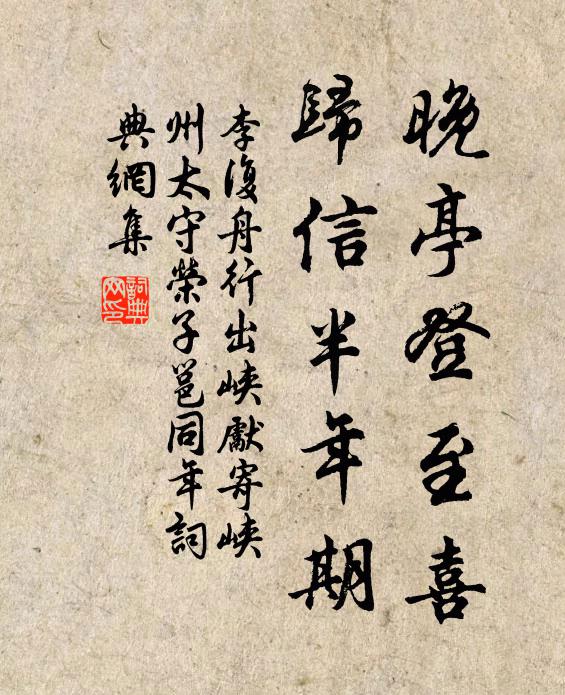 晚亭登至喜
歸信半年期
李復舟行出峽獻寄峽
州太守榮子邕同年詞
典網集
詞典
网印